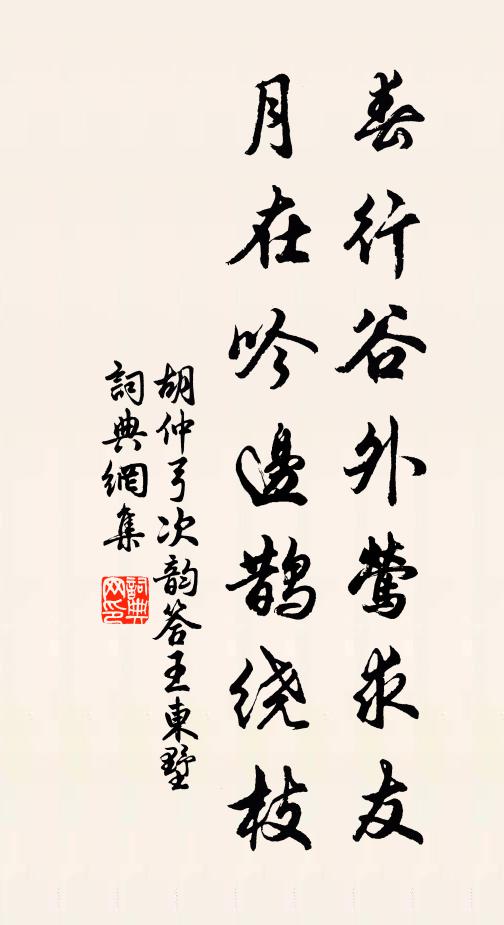 春行谷外莺求友
月在吟邊鹊绕枝
胡仲弓次韵答王東墅
詞典網集
詞典网印